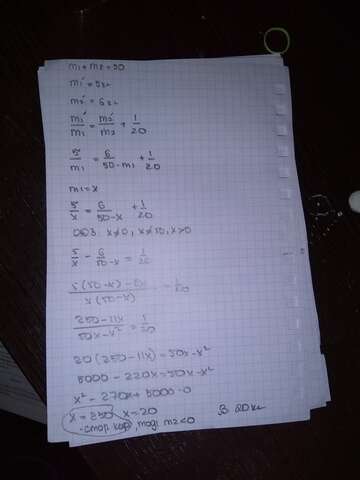 m₁ + m₂ = 50
m₁' = 5кг
m₂' = 6кг
m₁'/m₁ = m₂'/m₂ + 1/20
5/m₁ = 6/(50-m₁) + 1/20
m₁ = x
5/x = 6/(50-x) + 1/20
ОДЗ x≠0, x≠50, x>0
5/x - 6/(50-x) = 1/20
(5(50-x)-6x)/(x(50-x)) = 1/20
(250-11x)/(50x-x²) = 1/20
20(250-11x) = 50x-x²
5000-220x = 50x-x²
x²-270x+5000=0
x=250 x=20
-стор. кор, тоді m₂<0 В 20кг